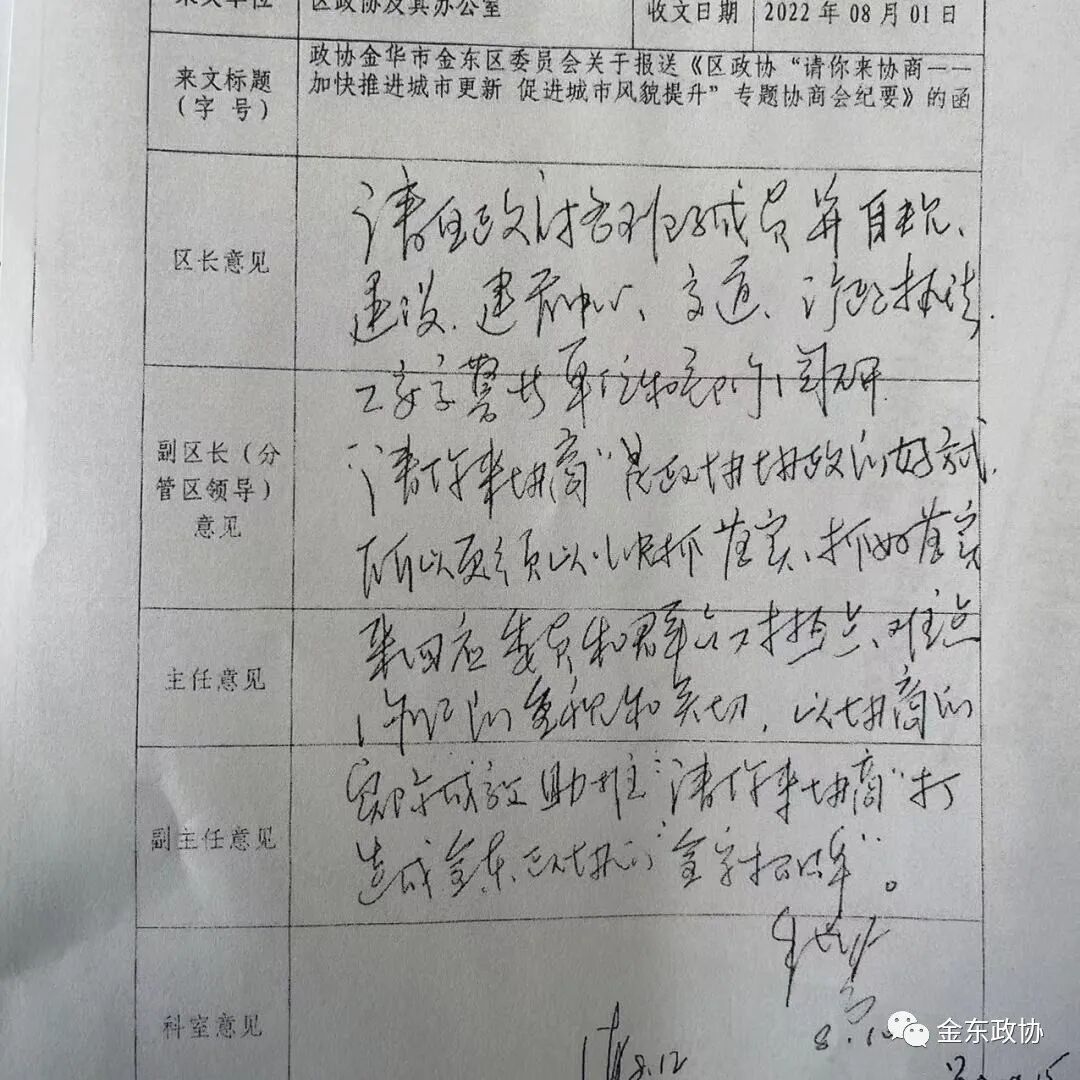 来文单位 区政协及其办公室 收文日期 2022 年 08 月 01 日
来文标题（字 号）
政协金华市金东区委员会关于报送《区政协“请你来协商——
加快推进城市更新 促进城市风貌提升”专题协商会纪要》的函
区长意见
请区政府各班子成员并自规、
建设、建发中心、交通、行政执法、
交警等单位
副区长（分
管区领导）
意见
“请你来协商”是政协协政的好方式,
所以更须以 抓落实、抓好落实
主任意见
来回应委员和群众对热点、难点
问题的重视和关切，以协商的
副主任意见
实际成效助推“请你来协商”打
造成金东政协的“金字招牌”。
科室意见
8.10
8.12
金东政协